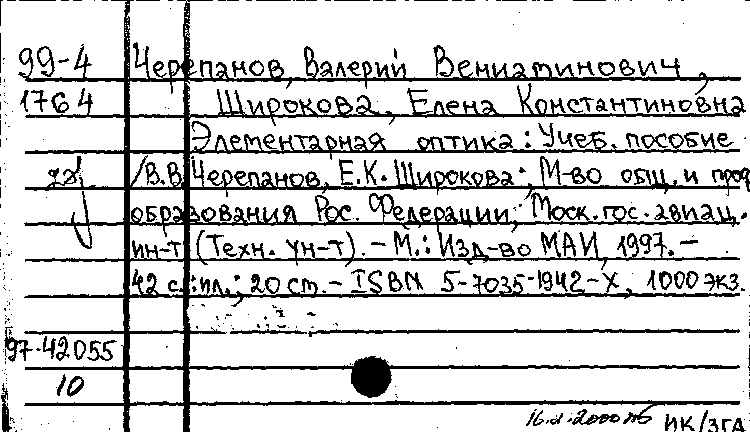 99-4 Черепанов, Валерий Вениаминович,
1764 Широкова, Елена Константиновна
Элементарная оптика: Учеб. пособие
/В.В. Черепанов, Е.К. Широкова; М-во общ. и проф
образования Рос. Федерации, Моск. гос. авиац.
ин-т (Техн. ун-т). - М.: Изд-во МАИ, 1997. -
42 с.: ил.; 20 см. - ISBN 5-7035-1942-X, 1000 экз.
97-42055
10
ИК/ЗГА